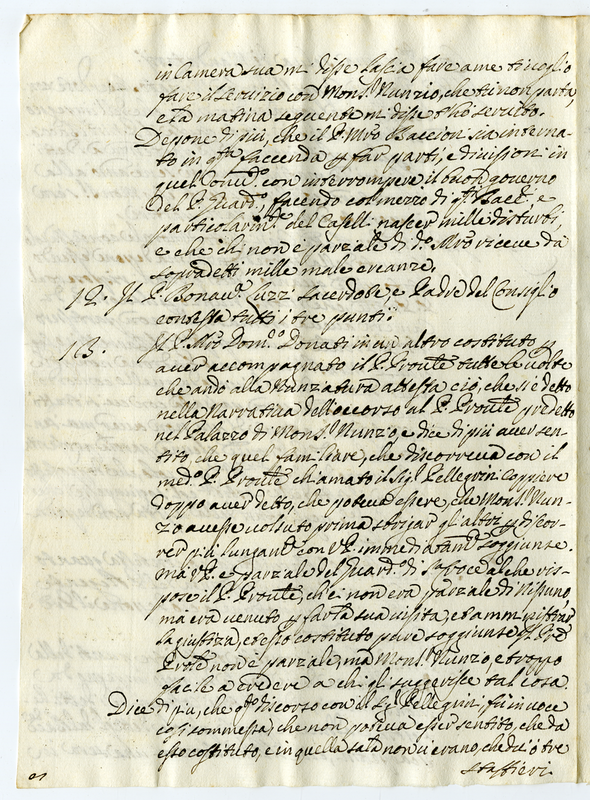 in Camera sua m: disse lascia fare a me ti voglio
fare il servizio con Mons.r Nunzio, che tu non parta,
e la matina seguente m: disse t'hò servito.
Depone di più, che il P. Mro Baccion sia interna-
to in q.ta faccenda p far parti, e division: in
quel Conv.o con interrompere il buon governo
del P. Guard.o, facendo con mezzo di q.ti Bacc.i e
particolarm.te del Casell: nascer mille disturbi,
e che chi non è parziale di d.o Mro riceve da
sopradetti mille male creanze.
12. Il P. Bonav.a Luzzi sacerdote, e Padre del Consiglio
contesta tutti i tre punti.
13. Il P. Mro Dom.co Donati in un altro costituto p
aver accompagnato il P. Prõule tutte le volte
che andò alla Nunziatura attesta ciò, che si è detto
nella narrativa dell'occorso al P. Prõule predetto
nel Palazzo di Mons.r Nunzio, e dice di più aver sen-
tito che quel familiare, che discorreva con il
med.o P. Prõule chiamato il Sig.r Pellegrin: Coppiere
doppo aver detto, che poteva essere, che Mons.r Nun-
zo avesse voluto prima sbrigar gl'altri p discor-
rer più lungam.te con V.P. immediatam.te soggiunse.
ma V.P. è parziale del Guard.o di S.ta Croce al che ris-
pose il P. Prõule, che non era parziale di nissuno,
ma era venuto p far la sua visita, et amministrar
la giustizia, et esso costituto pure soggiunse il P.
Prõule non è parziale, ma Mons.r Nunzio, è troppo
facile a credere a chi gl: suggerisce tal cosa.
Dice di più, che q.to discorso con il Sig.r Pellegrin: fù in voce
così sommessa, che non poteva esser sentito, che da
esso costituto, e in quella sala non v'erano, che du' ò tre
staffieri.